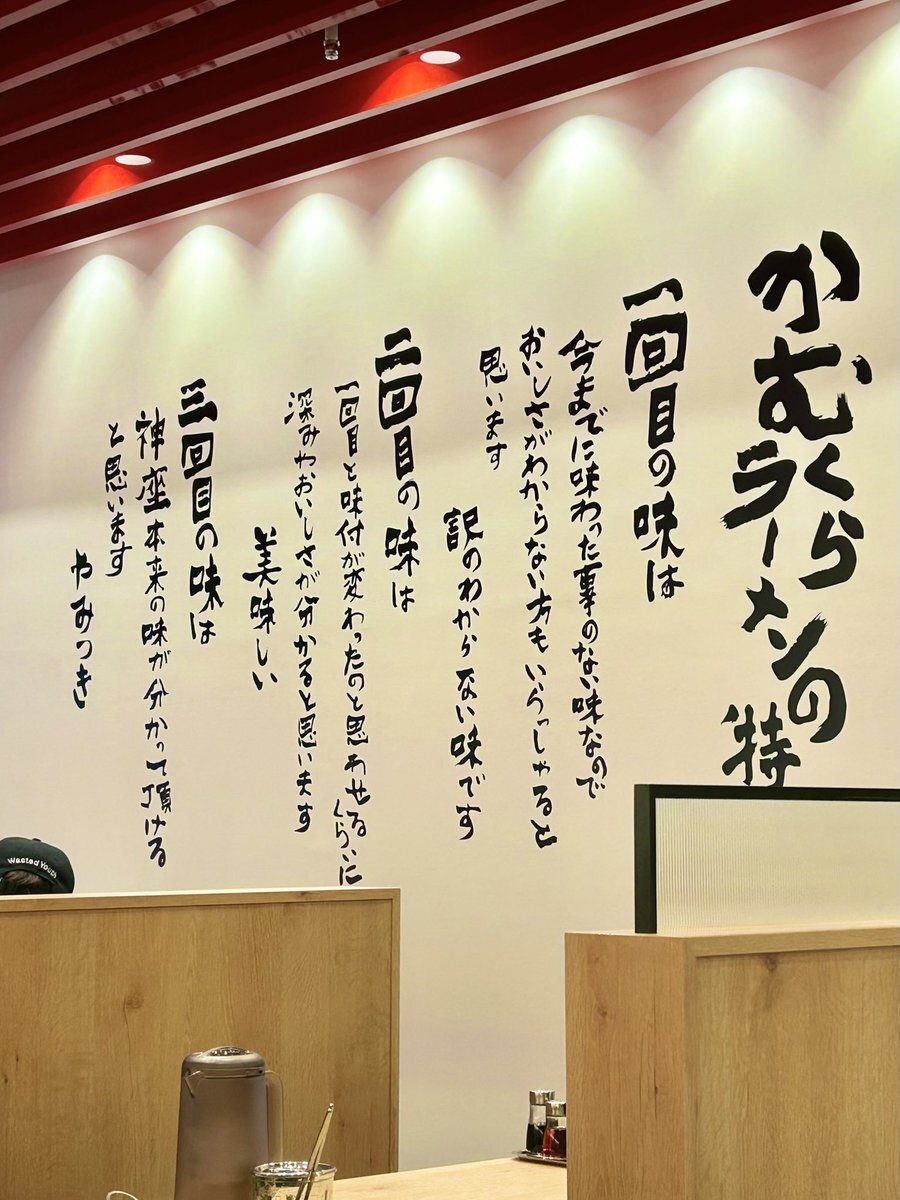 かむくらラーメンの特
一回目の味は
今までに味わった事のない味なので
おいしさがわからない方もいらっしゃると
思います
訳のわからない味です
二回目の味は
一回目と味付が変わったのと思わせるくらいに
深みやおいしさが分かると思います
美味しい
三回目の味は
神座本来の味が分かって頂ける
と思います
やみつき
Wasted Youth